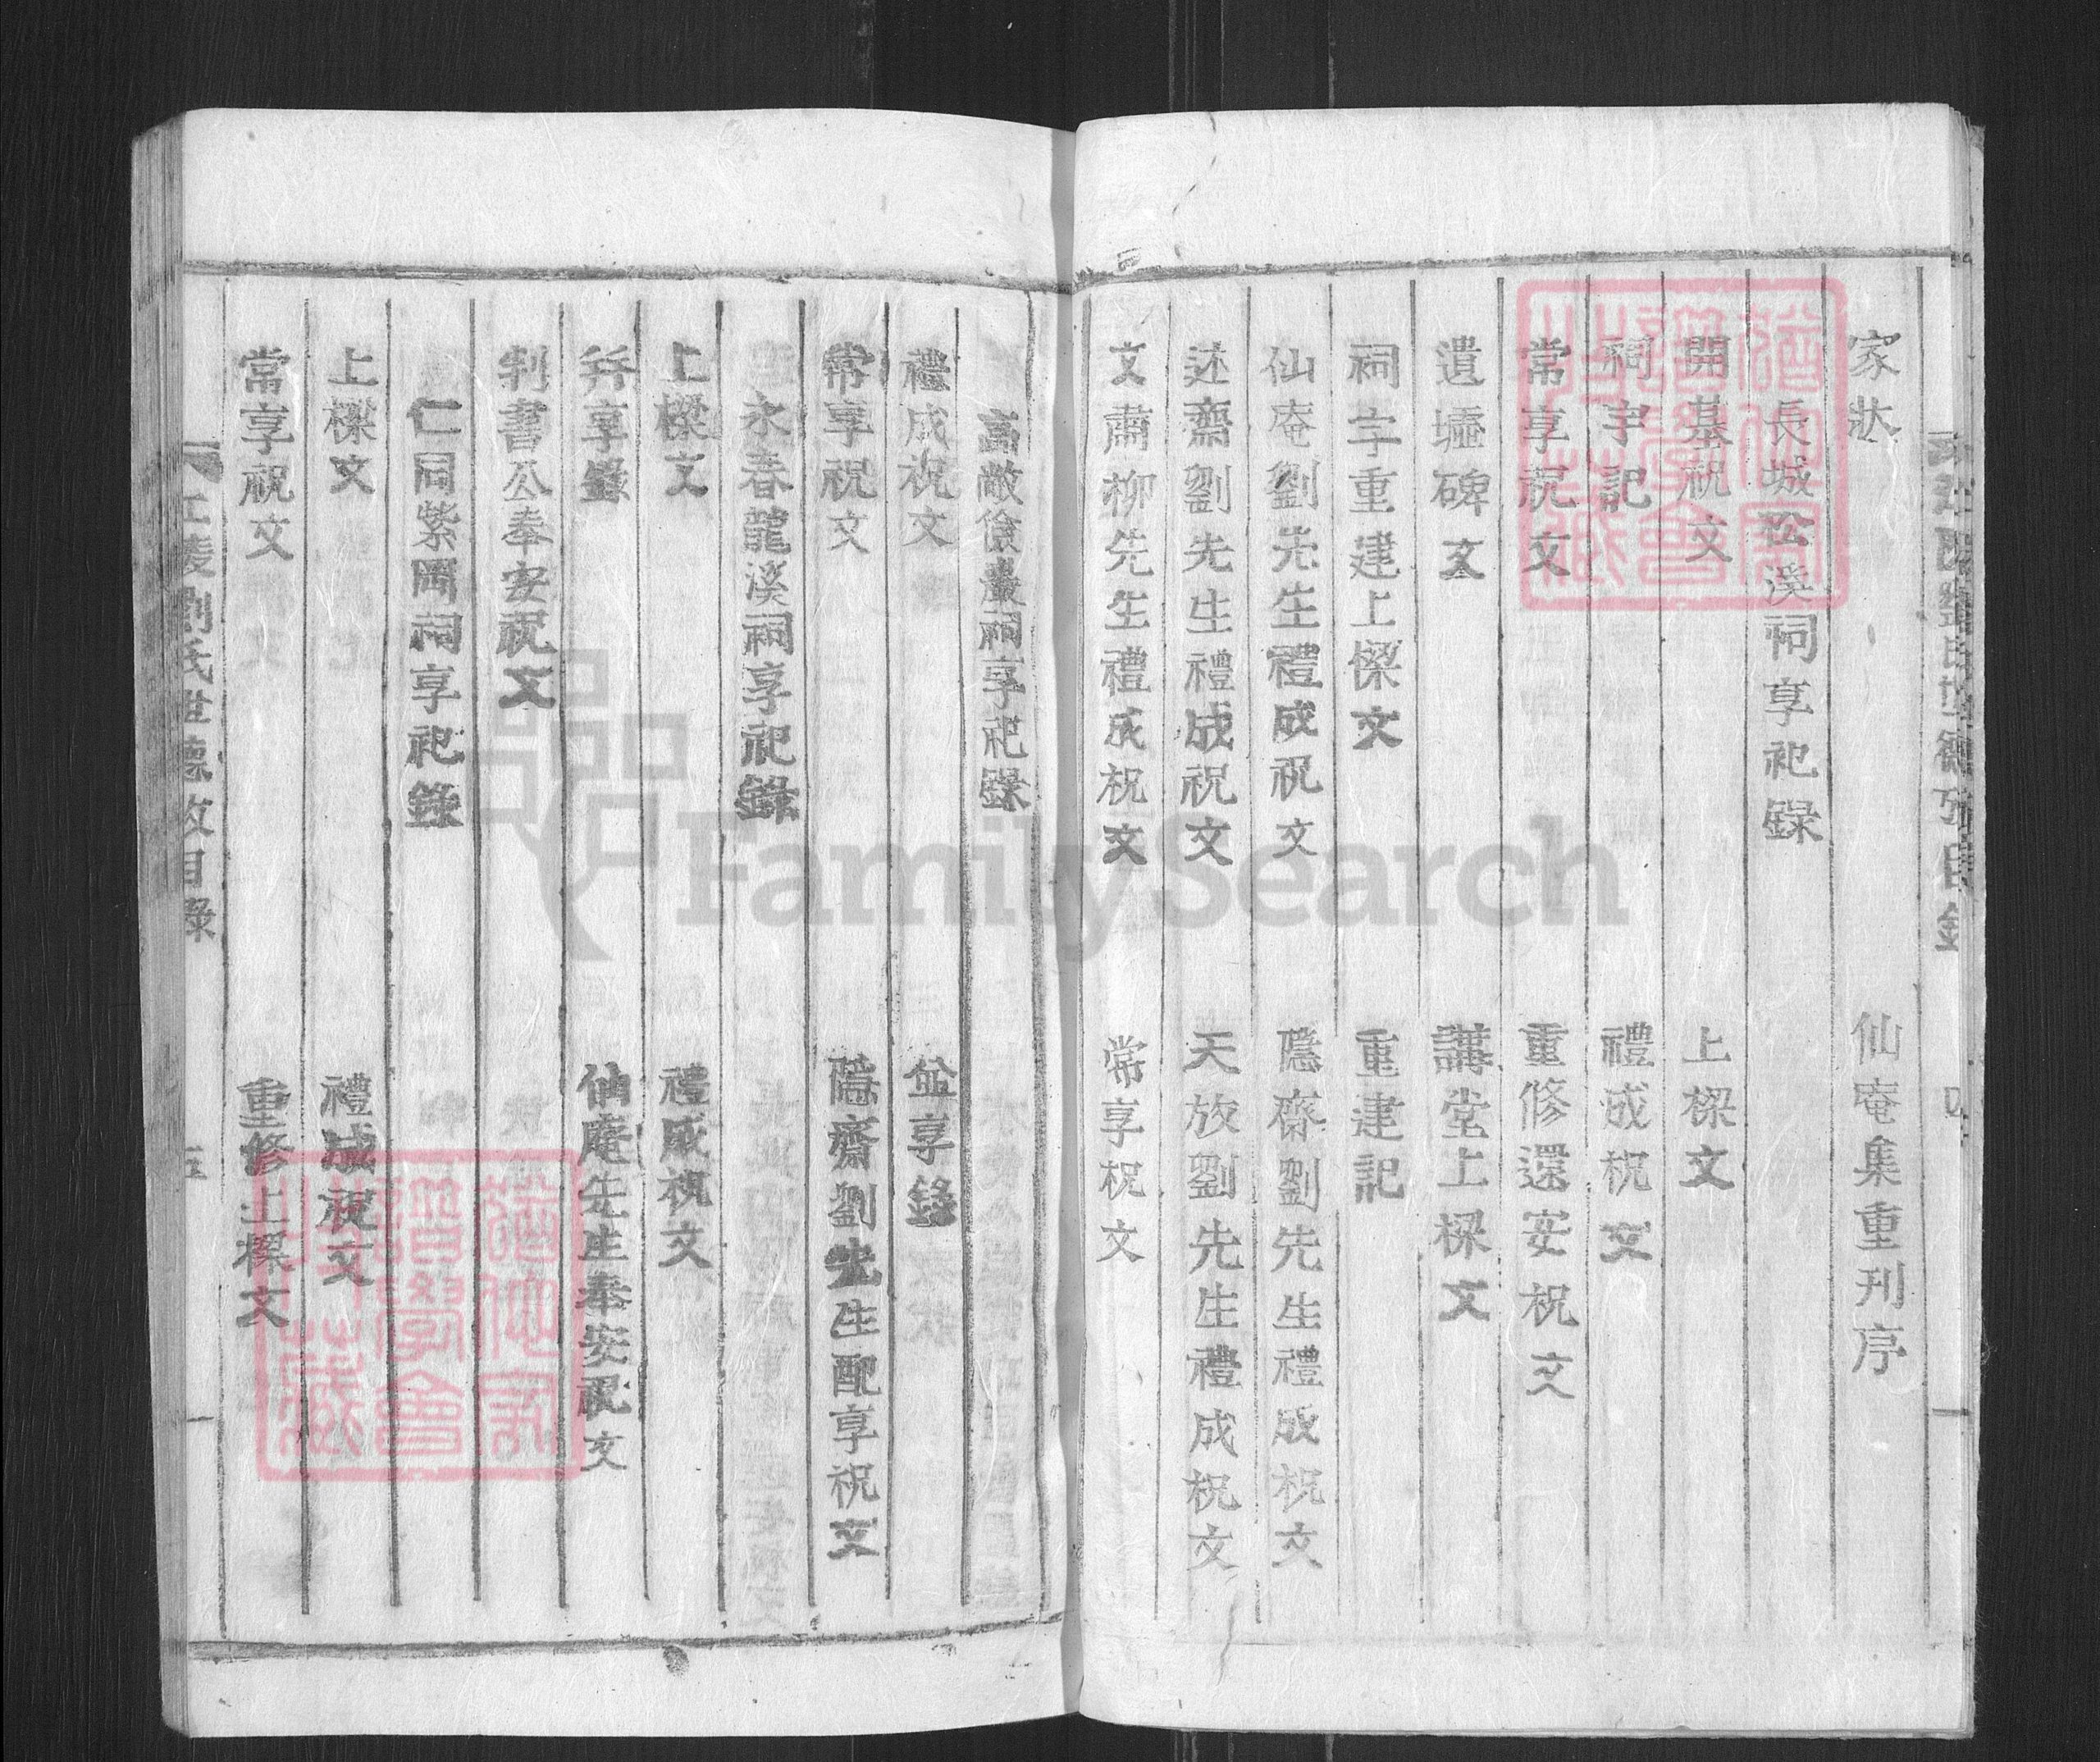 家狀 仙庵集重刊序
長城松溪祠享祀錄
開基祝文 上樑文
祠宇記 禮成祝文
常享祝文 重修還安祝文
遺墟碑文 講堂上樑文
祠宇重建上樑文 重建記
仙庵劉先生禮成祝文 隱齋劉先生禮成祝文
述齋劉先生禮成祝文 天放劉先生禮成祝文
文肅柳先生禮成祝文 常享祝文
高敞儉巖祠享祀錄
禮成祝文 並享錄
常享祝文 隱齋劉先生配享祝文
永春龍溪祠享祀錄
上樑文 禮成祝文
幷享錄 仙庵先生奉安祝文
判書公奉安祝文
仁同紫岡祠享祀錄
上樑文 禮成祝文
常享祝文 重修上樑文
江陵劉氏世德攷目錄 五
FamilySearch